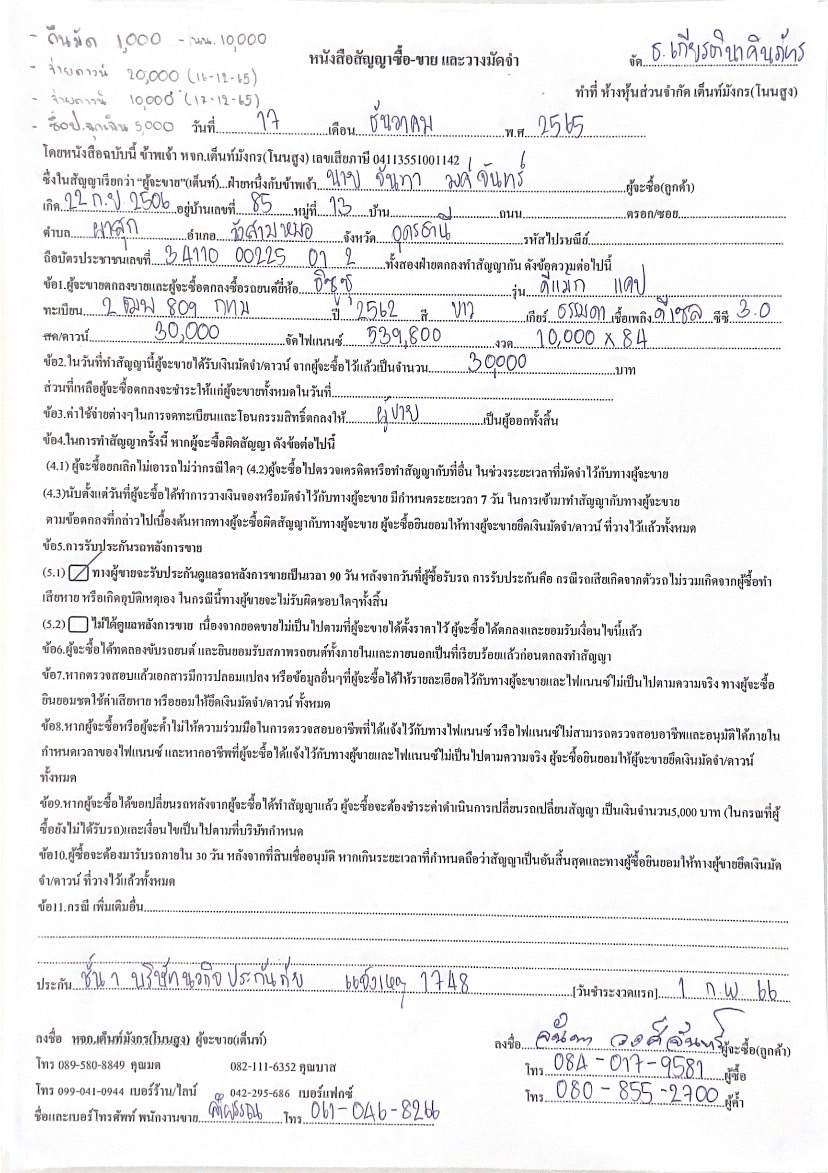 - คืนมัด 1,000 - นน. 10,000
- จ่ายดาวน์ 20,000 (16-12-65)
- จ่ายดาวน์ 10,000 (17-12-65)
- ซื้อป.ฉุกเฉิน 5,000
หนังสือสัญญาซื้อ-ขาย และวางมัดจำ
จัด ธ.เกียรตินาคินภัทร
ทำที่ ห้างหุ้นส่วนจำกัด เต็นท์มังกร(โนนสูง)
วันที่ 17 เดือน ธันวาคม พ.ศ 2565
โดยหนังสือฉบับนี้ ข้าพเจ้า หจก.เต็นท์มังกร(โนนสูง) เลขเสียภาษี 04113551001142
ซึ่งในสัญญาเรียกว่า "ผู้จะขาย"(เต็นท์)...ฝ่ายหนึ่งกับข้าพเจ้า นาย จันทา วงค์จันทร์ ผู้จะซื้อ(ลูกค้า)
เกิด 22 ก.ย 2506 อยู่บ้านเลขที่ 85 หมู่ที่ 13 บ้าน ถนน ตรอก/ซอย
ตำบล ผาสุก อำเภอ วังสามหมอ จังหวัด อุดรธานี รหัสไปรษณีย์
ถือบัตรประชาชนเลขที่ 3 4110 00225 01 2 ทั้งสองฝ่ายตกลงทำสัญญากัน ดังข้อความต่อไปนี้
ข้อ1.ผู้จะขายตกลงขายและผู้จะซื้อตกลงซื้อรถยนต์ยี่ห้อ อีซูซุ รุ่น ดีแม็ก แคป
ทะเบียน 2 ฒพ 809 กทม ปี 2562 สี ขาว เกียร์ ธรรมดา เชื้อเพลิง ดีเซล ซีซี 3.0
สด/ดาวน์ 30,000 จัดไฟแนนซ์ 539,800 งวด 10,000 x 84
ข้อ2.ในวันที่ทำสัญญานี้ผู้จะขายได้รับเงินมัดจำ/ดาวน์ จากผู้จะซื้อไว้แล้วเป็นจำนวน 30,000 บาท
ส่วนที่เหลือผู้จะซื้อตกลงจะชำระให้แก่ผู้จะขายทั้งหมดในวันที่
ข้อ3.ค่าใช้จ่ายต่างๆในการจดทะเบียนและโอนกรรมสิทธิ์ตกลงให้ ผู้ขาย เป็นผู้ออกทั้งสิ้น
ข้อ4.ในการทำสัญญาครั้งนี้ หากผู้จะซื้อผิดสัญญา ดังข้อต่อไปนี้
(4.1) ผู้จะซื้อยกเลิกไม่เอารถไม่ว่ากรณีใดๆ (4.2)ผู้จะซื้อไปตรวจเครดิตหรือทำสัญญากับที่อื่น ในช่วงระยะเวลาที่มัดจำไว้กับทางผู้จะขาย
(4.3)นับตั้งแต่วันที่ผู้จะซื้อได้ทำการวางเงินจองหรือมัดจำไว้กับทางผู้จะขาย มีกำหนดระยะเวลา 7 วัน ในการเข้ามาทำสัญญากับทางผู้จะขาย
ตามข้อตกลงที่กล่าวไปเบื้องต้นหากทางผู้จะซื้อผิดสัญญากับทางผู้จะขาย ผู้จะซื้อยินยอมให้ทางผู้จะขายยึดเงินมัดจำ/ดาวน์ ที่วางไว้แล้วทั้งหมด
ข้อ5.การรับประกันรถหลังการขาย
(5.1) ทางผู้ขายจะรับประกันดูแลรถหลังการขายเป็นเวลา 90 วัน หลังจากวันที่ผู้ซื้อรับรถ การรับประกันคือ กรณีรถเสียเกิดจากตัวรถไม่รวมเกิดจากผู้ซื้อทำ
เสียหาย หรือเกิดอุบัติเหตุเอง ในกรณีนี้ทางผู้ขายจะไม่รับผิดชอบใดๆทั้งสิ้น
(5.2) ไม่ได้ดูแลหลังการขาย เนื่องจากยอดขายไม่เป็นไปตามที่ผู้จะขายได้ตั้งราคาไว้ ผู้จะซื้อได้ตกลงและยอมรับเงื่อนไขนี้แล้ว
ข้อ6.ผู้จะซื้อได้ทดลองขับรถยนต์ และยินยอมรับสภาพรถยนต์ทั้งภายในและภายนอกเป็นที่เรียบร้อยแล้วก่อนตกลงทำสัญญา
ข้อ7.หากตรวจสอบแล้วเอกสารมีการปลอมแปลง หรือข้อมูลอื่นๆที่ผู้จะซื้อได้ให้รายละเอียดไว้กับทางผู้จะขายและไฟแนนซ์ไม่เป็นไปตามความจริง ทางผู้จะซื้อ
ยินยอมชดใช้ค่าเสียหาย หรือยอมให้ยึดเงินมัดจำ/ดาวน์ ทั้งหมด
ข้อ8.หากผู้จะซื้อหรือผู้จะค้ำไม่ให้ความร่วมมือในการตรวจสอบอาชีพที่ได้แจ้งไว้กับทางไฟแนนซ์ หรือไฟแนนซ์ไม่สามารถตรวจสอบอาชีพและอนุมัติได้ภายใน
กำหนดเวลาของไฟแนนซ์ และหากอาชีพที่ผู้จะซื้อได้แจ้งไว้กับทางผู้ขายและไฟแนนซ์ไม่เป็นไปตามความจริง ผู้จะซื้อยินยอมให้ผู้จะขายยึดเงินมัดจำ/ดาวน์
ทั้งหมด
ข้อ9.หากผู้จะซื้อได้ขอเปลี่ยนรถหลังจากผู้จะซื้อได้ทำสัญญาแล้ว ผู้จะซื้อจะต้องชำระค่าดำเนินการเปลี่ยนรถเปลี่ยนสัญญา เป็นเงินจำนวน5,000 บาท (ในกรณที่ผู้
ซื้อยังไม่ได้รับรถ)และเงื่อนไขเป็นไปตามที่บริษัทกำหนด
ข้อ10.ผู้ซื้อจะต้องมารับรถภายใน 30 วัน หลังจากที่สินเชื่ออนุมัติ หากเกินระยะเวลาที่กำหนดถือว่าสัญญาเป็นอันสิ้นสุดและทางผู้ซื้อยินยอมให้ทางผู้ขายยึดเงินมัด
จำ/ดาวน์ ที่วางไว้แล้วทั้งหมด
ข้อ11.กรณี เพิ่มเติมอื่น
ประกัน ชั้น 1 บริษัทนวกิจประกันภัย แจ้งเหตุ 1748 [วันชำระงวดแรก] 1 ก.พ 66
ลงชื่อ หจก.เต็นท์มังกร(โนนสูง) ผู้จะขาย(เต็นท์)
ลงชื่อ จันทา วงศ์จันทร์ ผู้จะซื้อ(ลูกค้า)
โทร 089-580-8849 คุณมด 082-111-6352 คุณบาส
โทร 084-017-9581 ผู้ซื้อ
โทร 099-041-0944 เบอร์ร้าน/ไลน์ 042-295-686 เบอร์แฟกซ์
โทร 080-855-2700 ผู้ค้ำ
ชื่อและเบอร์โทรศัพท์ พนักงานขาย โทร 061-046-8266